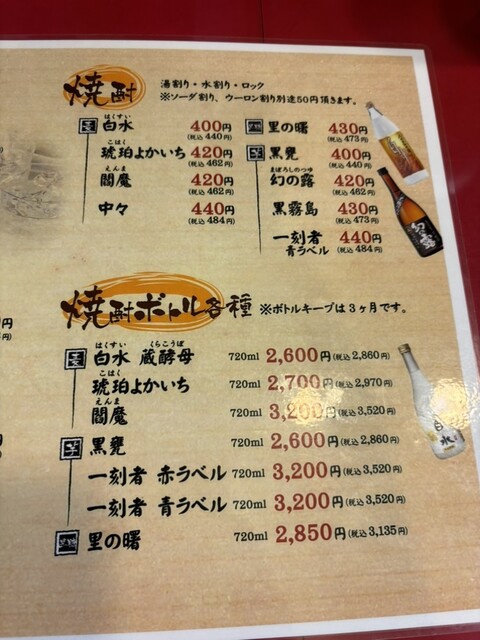 焼酎
湯割り・水割り・ロック
※ソーダ割り、ウーロン割り別途50円頂きます。
麦 白水 はくすい 400円 (税込440円)
琥珀よかいち こはく 420円 (税込462円)
閻魔 えんま 420円 (税込462円)
中々 440円 (税込484円)
里の曙 430円 (税込473円)
芋 黒甕 400円 (税込440円)
幻の露 まぼろしのつゆ 420円 (税込462円)
黒霧島 430円 (税込473円)
一刻者 青ラベル 440円 (税込484円)
焼酎ボトル各種 ※ボトルキープは3ヶ月です。
麦 白水 はくすい 蔵酵母 くらこうぼ 720ml 2,600円 (税込2,860円)
琥珀よかいち こはく 720ml 2,700円 (税込2,970円)
閻魔 えんま 720ml 3,200円 (税込3,520円)
芋 黒甕 720ml 2,600円 (税込2,860円)
一刻者 赤ラベル 720ml 3,200円 (税込3,520円)
一刻者 青ラベル 720ml 3,200円 (税込3,520円)
里の曙 720ml 2,850円 (税込3,135円)
白水